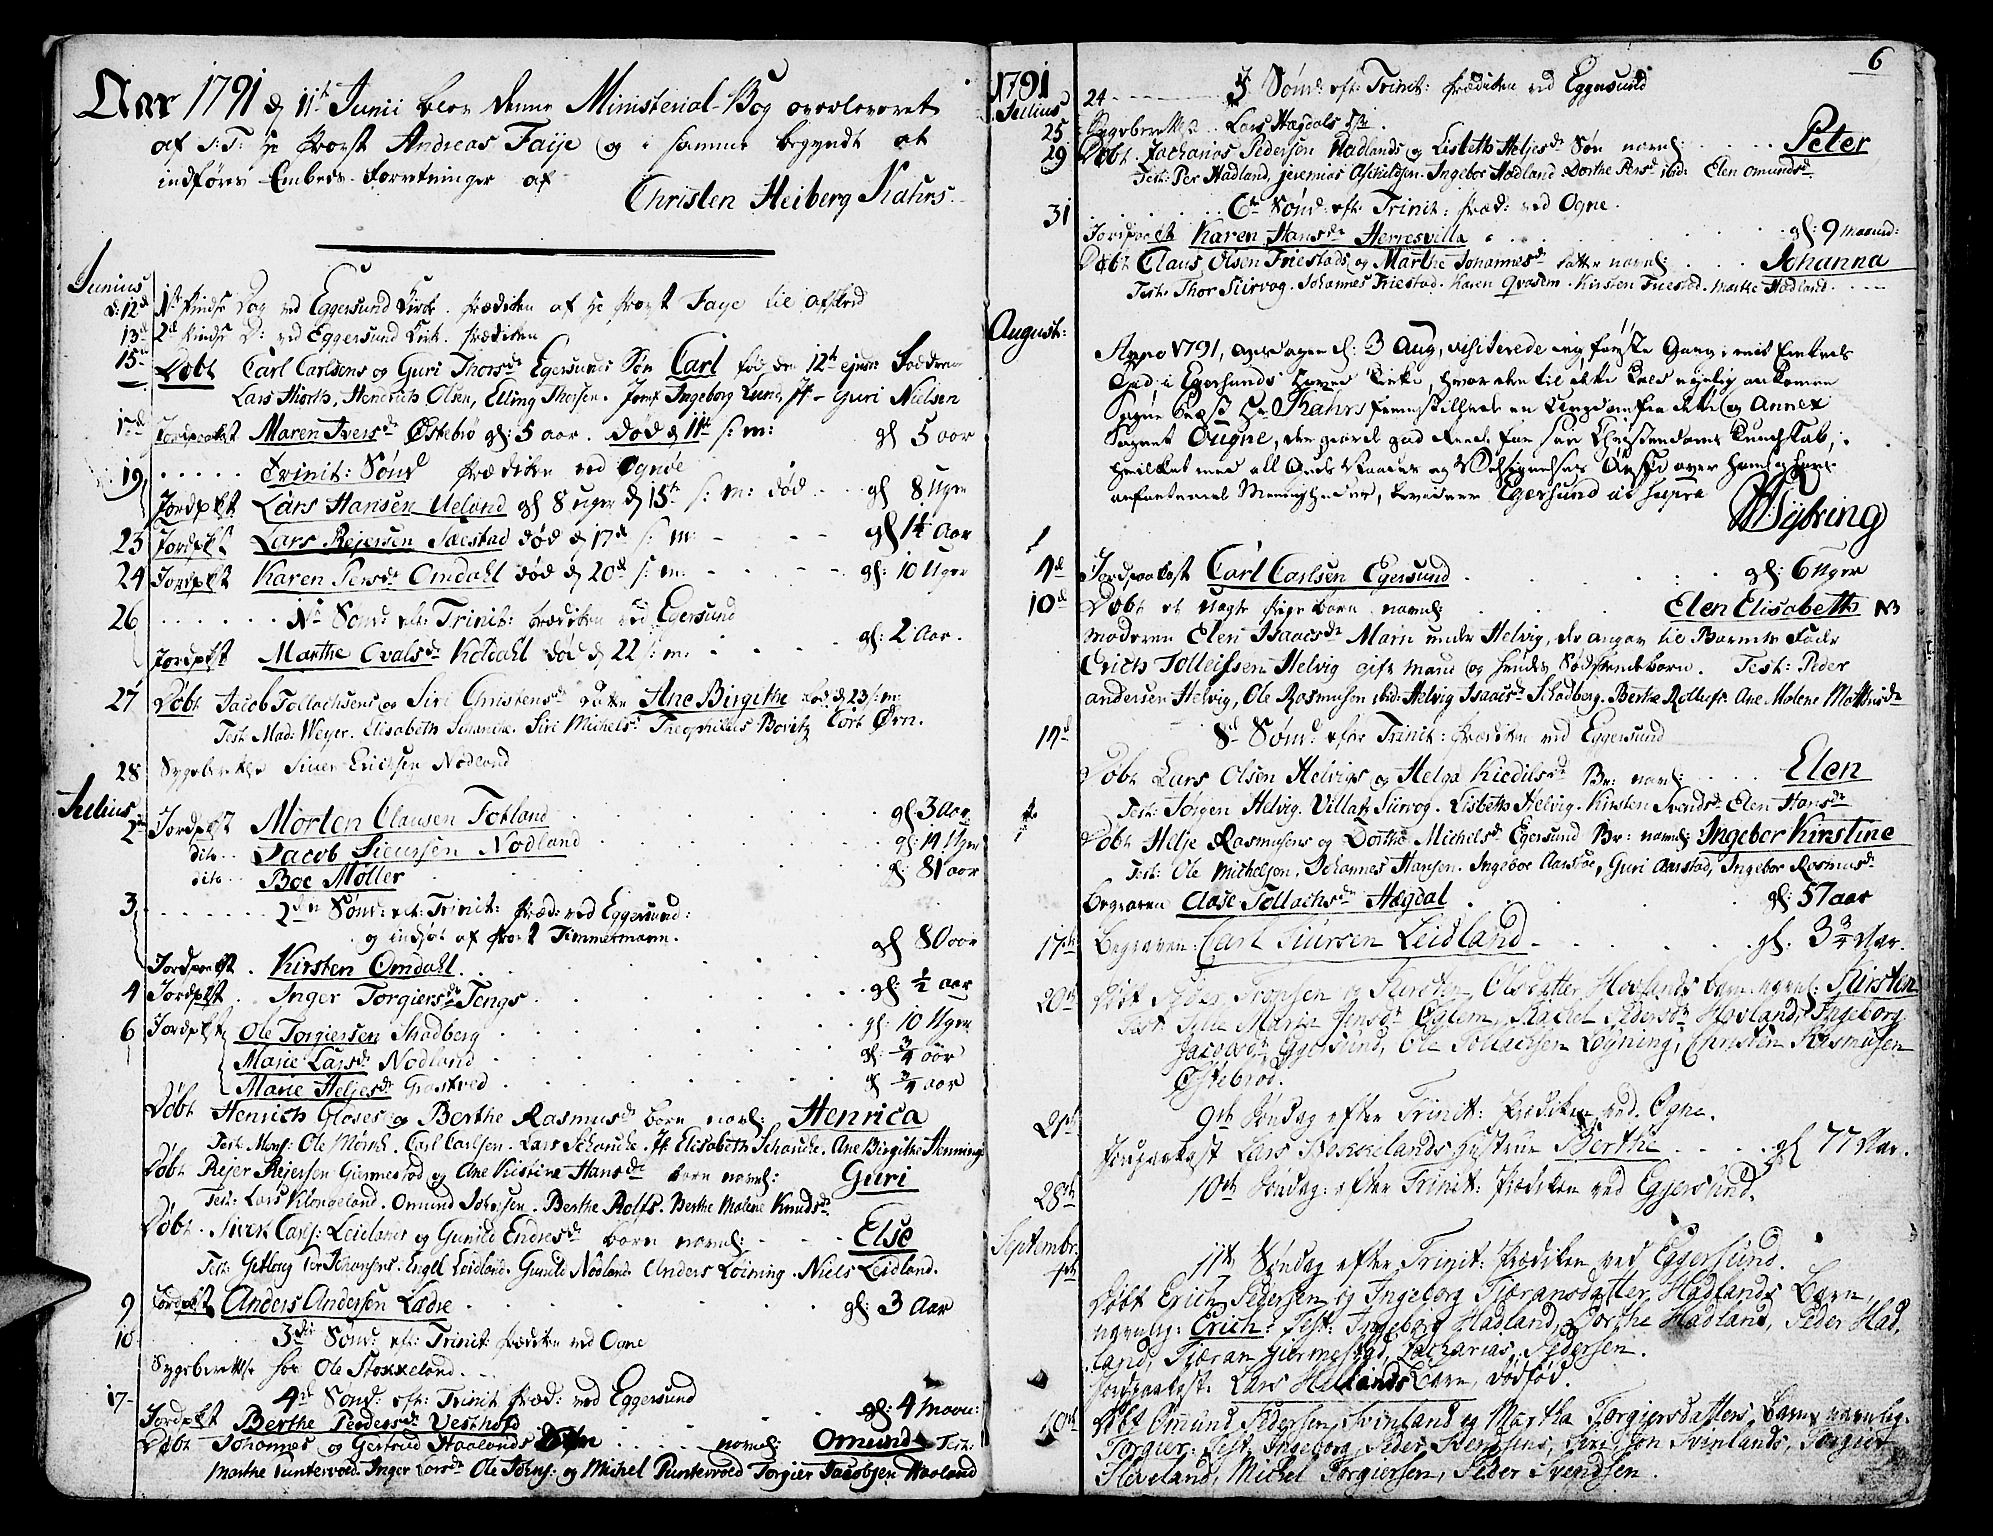 Aar 1791 d 11t Junii blev denne Ministerial-Bog overleveret
af S: T: Hr Provst Andreas Faÿe og i samme begyndt at
indføres Embeds-Forretninger af
Christen Heiberg Kahrs
Junius
d: 12t 1st Pindse Dag ved Eggersund Kirke. Prædiken af Hr Provst Faye til afskeed
13d 2d Pindse D: ved Eggersund Kirk. Prædiken
15de Døbt Carl Carlsens og Guri Thorsdr Egersunds Søn Carl fød den 12te ejusd
Lars Hiorth, Hendrich Olsen, Elling Thorsen. Jomf Ingeborg Lund, Jf Guri Nielsen
17d Jordpaakast Maren Iversdr Østebrø gl: 5 aar. død d 11te s: m: gl 5 aar
19 Trinit: Sønd Prædiken ved Ognøe
Jordpkst Lars Hansen Ueland gl 8 uger d 15te s: m: død gl 8 Uger
23 Jordpkst Lars Rejersen Sæestad død d 17d s: m: gl 1¼ Aar
24 Jordpkst Karen Persdr Omdahl død d 20d s: m: gl: 10 Uger
26 1ste Sønd: eft: Trinit: Prædiken ved Egersund
Jordpkst Marthe Ovalsdr Koldahl død d 22 s: m: gl: 2 Aar.
27 Døbt Jacob Tollachsens og Siri Christensdr Datter Ane Birgithe fød d 23 s: m:
Test. Mad: Weyer. Elisabeth Schanche. Siri Michelsdr Theophilus Bovitz Cort Ørn.
28 Sygeberettelse Siver Erichsen Nodland
Julius
2den Jordpkst Morten Clausen Totland gl: 3 Aar
dito Jacob Sieursen Nodland gl: 14 Uger
dito Boe Møller gl: 81 aar
3 2den Sønd: eft: Trinit: Præd: ved Eggersund:
og indsat af Provst Timmermann.
Jordpaakst. Kirsten Omdahl gl 80 aar
4 Jordpkst. Inger Torgiersdr Tengs gl: ½ aar
6 Jordpkst Ole Torgiersen Skadberg gl: 10 Uger
Marie Larsdr Nodland gl: ¾ aar
Marie Heljesdr Grøstved gl ¾ aar
Døbt Henrich Gloses og Berthe Rasmusdr barn navnl: Henrica
Test. Mons: Ole Mørch. Carl Carlsen. Lars Schanche. Jf Elisabeth Schanche. Ane Birgithe Henning
Døbt Rejer Rejersen Giermestad og Ane Kirstine Hansdr barn navnl: Guri
Test: Lars Klongeland. Omund Johnsen. Berthe Rolfs. Berthe Malene Knudsdr
Døbt. Siver Carls: Leidlands og Gunild Endresdr barn navnl: Else
Test: Engel Leidland. Gunild Nodland Anders Løining. Niels Leidland.
9 Jordpkst Anders Andersen Ladre gl: 3 Aar
10 3die Sønd: eft: Trinit: Prædiken ved Ogne
Sygeberettelse hos Ole Stokkeland.
17 4de Sønd: eft: Trinit Præd: ved Eggersund
Jordpkst Berthe Pedersdr Vestbold gl: 4 Maan:
Døbt Johannes og Gertrud Haalands Søn navnl: Omund Test:
Marthe Puntervold. Inger Larsdr Ole Johns: og Michel Puntervold Torgier Jacobsen Haaland
6
1791
Julius
24 5 Sønd: eft: Trinit: Prædiken ved Eggersund
25 Sygeberettelse Lars Hægdals
29 Døbt Zacharias Pedersen Hadlands og Lisbeth Heljesdr Søn navnl: Peter
Test: Per Hadland, Jeremias Aschildsen. Ingebor Hadland Dorthe Persdr ibid: Elen Omundsdr
31 6te Sønd: eft: Trinit: Præd: ved Ogne.
Jordpaakst Karen Hansdr Herresvilla gl: 9 Maaned:
Døbt Claus Olsen Friestads og Marthe Johannesdr Datter navnl: Johanna
Test: Thor Siirvog. Johannes Friestad. Karen Qvasem. Kirsten Friestad. Marthe Hadland
August:
Anno 1791, Onsdagen d: 3 Aug, visiterede jeg første Gang i mit Embede
Gud i Egersunds Hoved Kirke, hvor den til dette Kald nylig ankomne
Sogne Præst Hr Kahrs fremstillede en Ungdom fra dette og Annex
Sognet Ougne, der giorde god Rede for sin Christendoms Kundskab,
hvilket med all Guds Naade og Velsignelses Ønske over ham og hans
anfortroede Menigheder, bevidner Egersund ut supra
Nybring
4d Jordpaakast Carl Carlsen Egersund gl: 6 Uger
10d Døbt et uægte Pigebarn navnl: Elen Elisabeth NB
Moderen Elen Isaacsdr Marin under Helvig, der angav til Barnets Fader
Erich Tolleifssen Helvig gift Mand og hendes Sødskendebarn. Test: Peder
Andersen Helvig, Ole Rasmusen ibid: Helvig Isaacsdr Schadberg. Berthe Rollufs. Ane Malene Mathiasdr
14d 8de Sønd: efter Trinit: Prædiken ved Eggersund
Døbt Lars Olsen Helvigs og Helga Kieldilsdr Br: navnl: Elen
Test: Jørgen Helvig. Villatz Siirvog. Lisbeth Helvig. Kirsten Svendsdr Elen Hansdr
Døbt Helje Rasmusens og Dorthe Michelsdr Egersund Br: navnl: Ingebor Kirstine
Test: Ole Michelsen. Johannes Hansen. Ingebor Aarstad, Guri Aarstad, Ingebor Rasmusdr
Begraven Aase Tollachsdr Hægdal gl: 57 aar
17de Begraven: Carl Siursen Leidland gl: 3¾ Aar.
20de Døbt Peder Tronsen og Kirsten Olsdatter Hovlands barn navnl: Kirsten
Test: Sille Maria Jensdr Eglem, Rachel Pedersdr Hovland, Ingeborg
Jacobsdr Eggersund, Ole Tollachsen Løyning, Christen Rasmusen
Østebrød.
21de 9de Søndag efter Trinit: Prædiken ved Ogne.
Jordpaakast Lars Stokkelands Hustrue Berthe gl 77 Aar.
28de 10de Søndag: efter Trinit: Prædiken ved Eggersund.
Septembr:
4de 11te Søndag efter Trinit: Prædiken ved Eggersund.
Døbt Erich Pedersen og Ingeborg Tiøransdatter Hadlands Barn,
navnlig: Erich: Test: Ingeborg Hadland, Dorthe Hadland, Peder Had-
land, Tiøran Giermestad, Zacharias Pedersen.
Jordpaakast. Lars Hellands Barn, dødfød.
10de Døbt Omund Pedersen Svinland og Martha Torgiersdatters Barn navnlig:
Torgier: Test: Ingeborg Peder Svendsens, Svinlands, Torgier
Sleveland, Michel Torgiersen, Peder Svendsen.